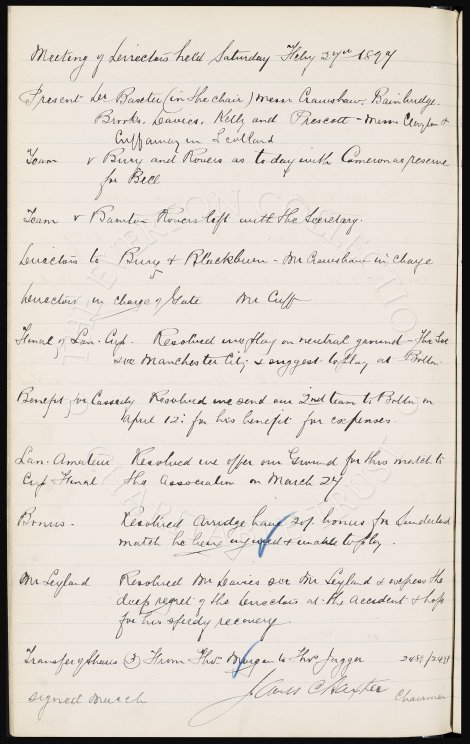 Meeting of Directors held Saturday Feby 27th 1897
Present Dr Baxter (in the chair) Messrs Crawshaw, Bainbridge,
Brooks, Davies, Kelly and Prescott - Messrs Clayton &
Cuff away in Scotland
Team v Bury and Rovers as to day with Cameron as reserve
for Bell
Team v Bainton Rovers left with the Secretary.
Directors to Bury & Blackburn - Mr Crawshaw in charge
Directors in charge of Gate Mr Cuff
Final of Lan. Cup. Resolved we play on neutral ground - The Sec
see Manchester City & suggest to play at Bolton
Benefit for Cassidy Resolved we send our 2nd team to Bolton on
April 12: for his benefit for expenses.
Lan. Amateur Resolved we offer our Ground for this match to
Cup Final the Association on March 27
Bonus. Resolved Arridge have 20/- bonus for Sunderland
match he being injured & unable to play.
Mr Leyland Resolved Mr Davies see Mr Leyland & express the
deep regret of the Directors at the accident & hope
for his speedy recovery
Transfer of Shares (3) From Thos Morgan to Thos Jagger
signed March James C Baxter Chairman
THE EVERTON COLLECTION
CHARITABLE TRUST